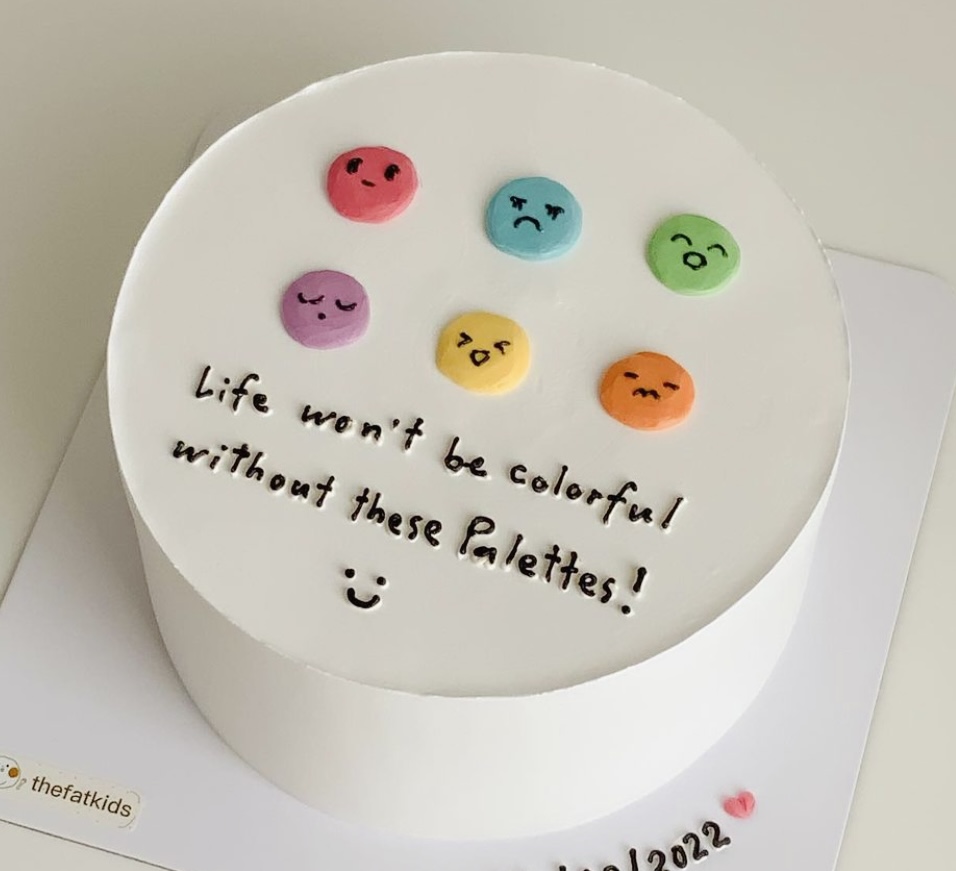 Life won't be colorful
without these Palettes!
thefatkids
/2022